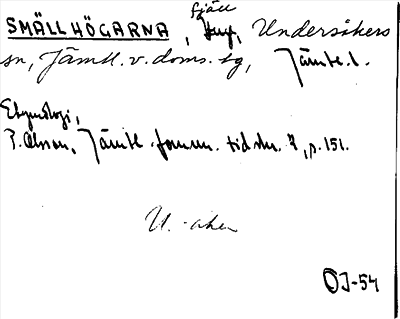 SMÄLLHÖGARNA, fjäll, Undersåkers
sn, Jämtl. v. doms. tg, Jämtl. l.
Etymologi,
P. Olsson, Jämtl. fornm. tidskr. 7, p. 151.
U.-åker
OJ-54